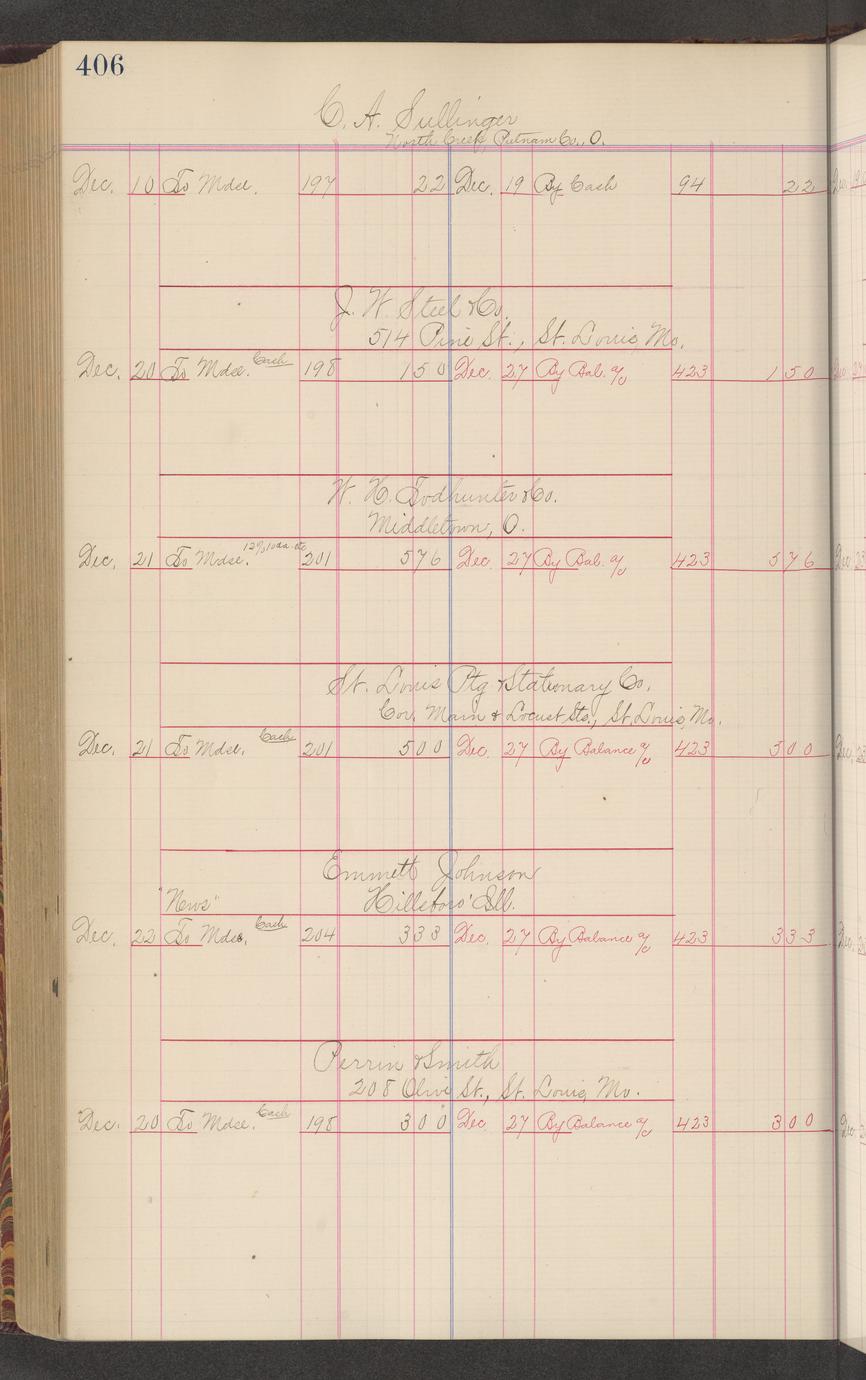 406
C. A. Sullinger
North Creek, Putnam Co., O.
Dec. 10 To Mdse. 197 22 Dec. 19 By Cash 94 22
J. W. Steel & Co.
514 Pine St., St. Louis, Mo.
Dec. 20 To Mdse. Cash 198 150 Dec. 27 By Bal. a/c 423 150
W. H. Todhunter & Co.
Middletown, O.
Dec. 21 To Mdse. 201 576 Dec. 27 By Bal. a/c 423 576
St. Louis Ptg & Stationary Co.
Cor. Main & Locust Sts., St. Louis, Mo.
Dec. 21 To Mdse. Cash 201 500 Dec. 27 By Balance a/c 423 500
Emmett Johnson
"News" Hillsboro' Ill.
Dec. 22 To Mdse. Cash 204 333 Dec. 27 By Balance a/c 423 333
Perrin & Smith
208 Olive St., St. Louis, Mo.
Dec. 20 To Mdse. Cash 198 300 Dec. 27 By Balance a/c 423 300